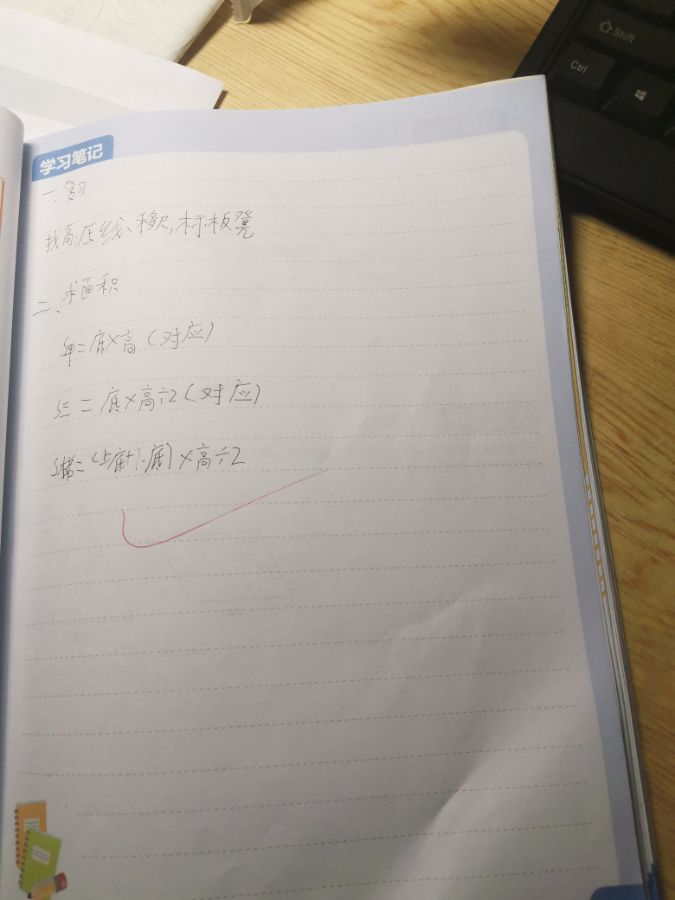 学习笔记
一、复习
找高:压线、移尺,标板凳
二、求面积
S平=底×高(对应)
S三=底×高÷2(对应)
S梯=(上底+下底)×高÷2
Shift
Ctrl